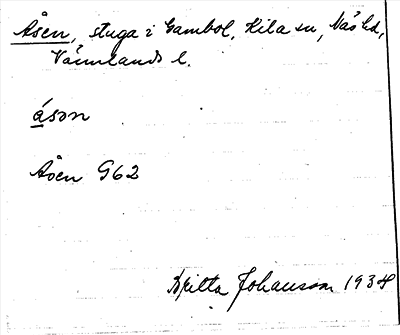 Åsen, stuga i Gambol, Kila sn, Näs hd,
Värmlands l.
åsən
Åsen G62
Britta Johansson 1934